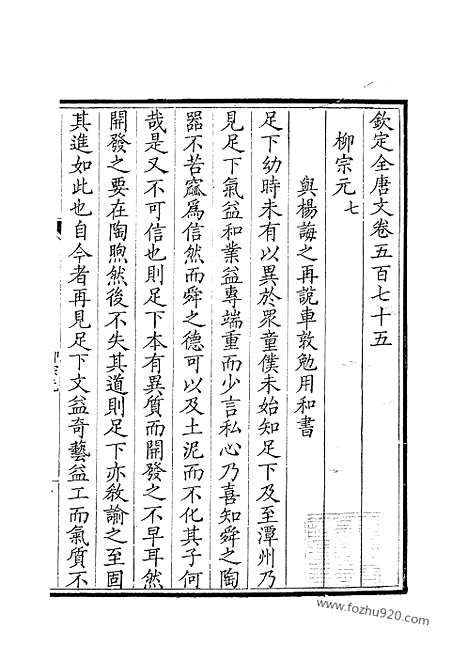 欽定全唐文卷五百七十五
柳宗元七
與楊誨之再說車敦勉用和書
足下幼時未有以異於眾童僕未始知足下及至潭州乃
見足下氣益和業益專端重而少言私心乃喜知舜之陶
器不苦窳為信然而舜之德可以及土泥而不化其子何
哉是又不可信也則足下本有異質而開發之不早耳然
開發之要在陶煦然後不失其道則足下亦敎諭之至固
其進如此也自今者再見足下文益奇藝益工而氣質不
www.fozhu920.com